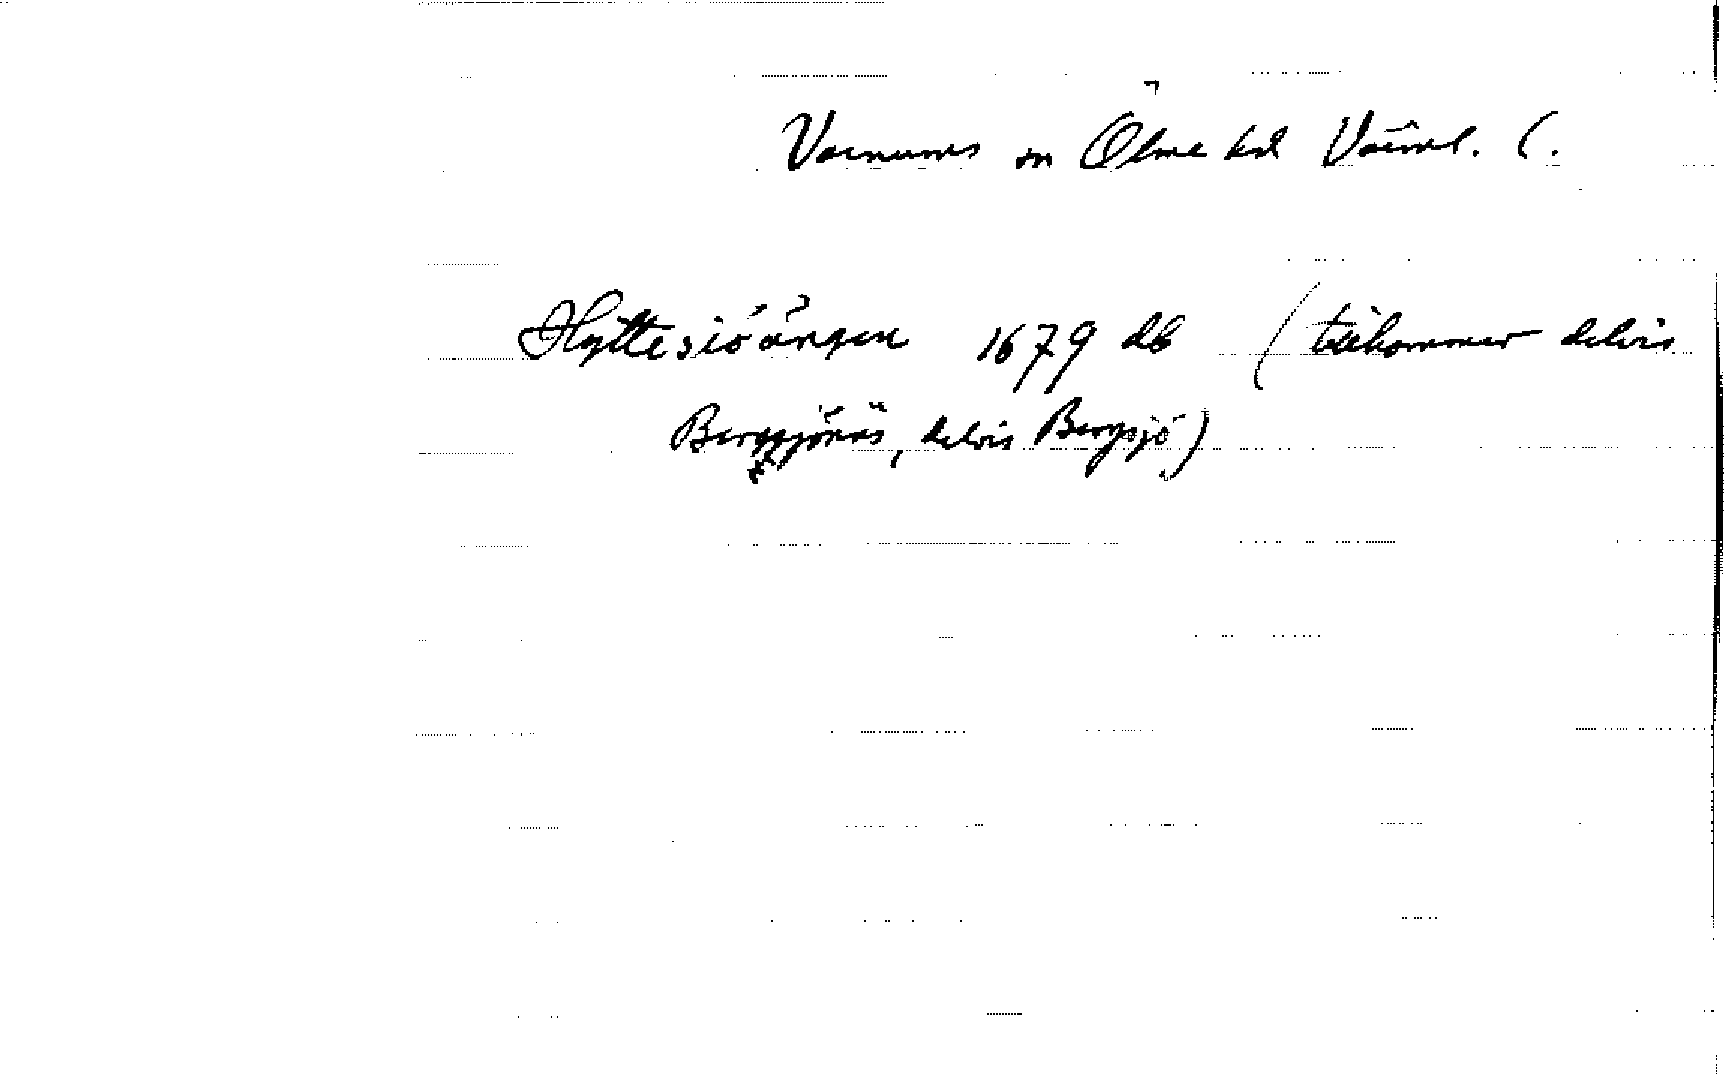 Varnums sn Ölme hd Värml. l.
Hyttesiöängen 1679 db (tillkommer delvis
Bergsjönäs, delvis Bergsjö)